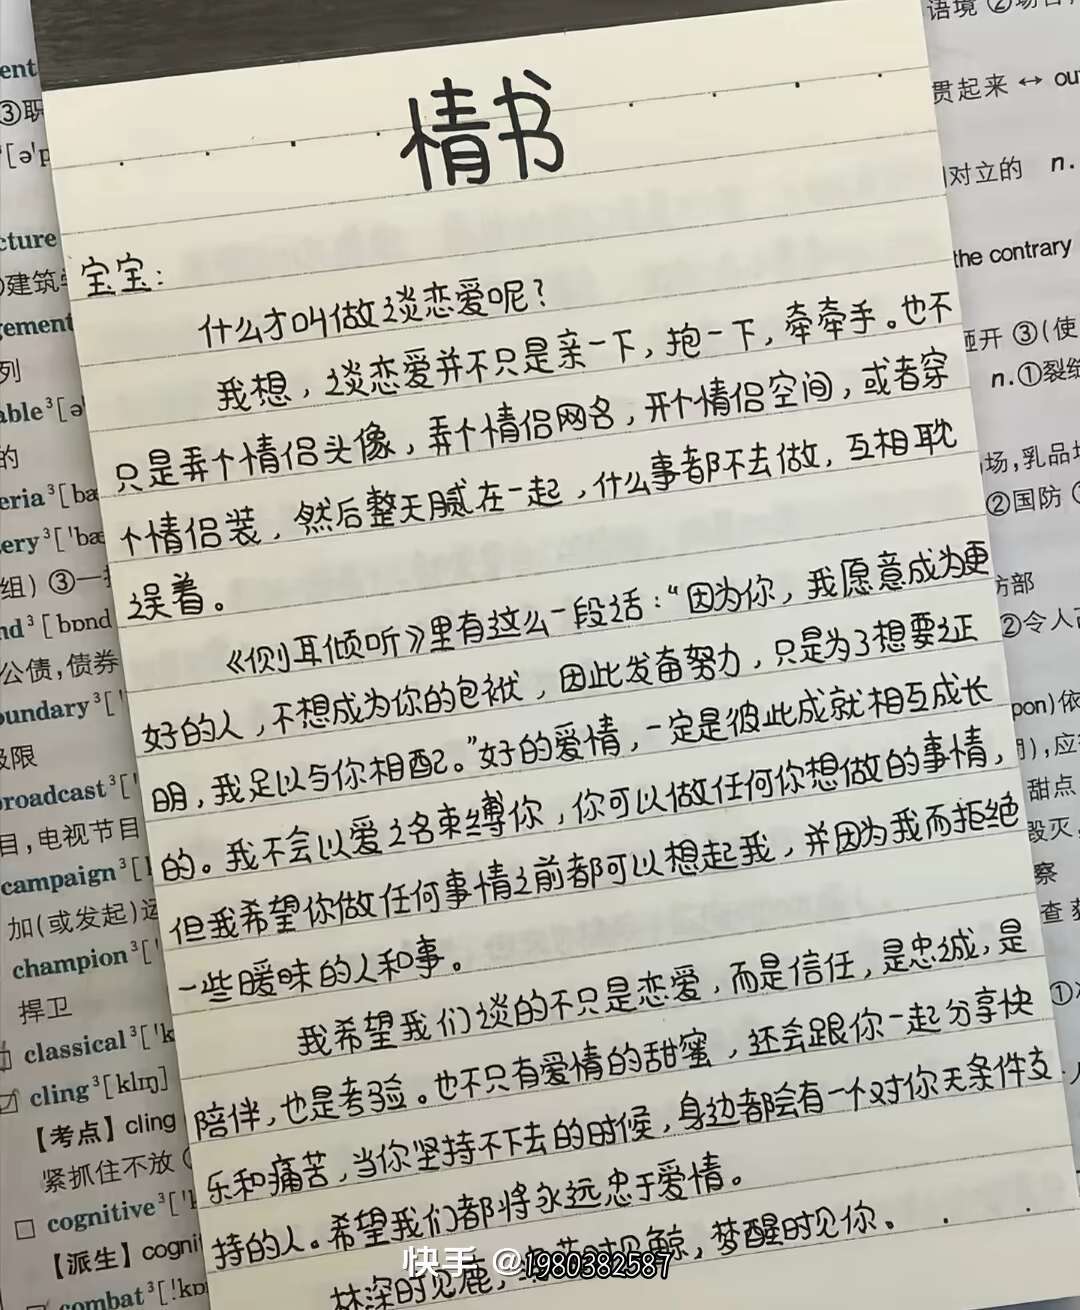 情书
宝宝：
什么才叫做谈恋爱呢？
我想，谈恋爱并不只是亲一下，抱一下，牵牵手。也不
只是弄个情侣头像，弄个情侣网名，开个情侣空间，或者穿
个情侣装，然后整天腻在一起，什么事都不去做，互相耽
误着。
《侧耳倾听》里有这么一段话：“因为你，我愿意成为更
好的人，不想成为你的包袱，因此发奋努力，只是为了想要证
明，我足以与你相配。”好的爱情，一定是彼此成就相互成长
的。我不会以爱之名束缚你，你可以做任何你想做的事情，
但我希望你做任何事情之前都可以想起我，并因为我而拒绝
一些暧昧的人和事。
我希望我们谈的不只是恋爱，而是信任，是忠诚，是
陪伴，也是考验。也不只有爱情的甜蜜，还会跟你一起分享快
乐和痛苦，当你坚持不下去的时候，身边都会有一个对你无条件支
持的人。希望我们都将永远忠于爱情。
林深时见鹿，时见鲸，梦醒时见你。
快手 @1980382587
ent
③职
[ə'p
cture
建筑学
gement
列
able³[ə
的
eria³[bæ
ery³['bæ
组) ③一
nd³[bɒnd
公债,债券
oundary³['
极限
broadcast³['
目,电视节目
campaign³[
加(或发起)运
champion³['
捍卫
classical³['k
cling³[klɪŋ]
【考点】cling
紧抓住不放
cognitive³['k
【派生】cogni
combat³['kɒ
语境 ②场合
贯起来 ↔ ou
对立的 n.
the contrary
砸开 ③(使
n.①裂缝
场,乳品场
②国防
防部
②令人
pon)依
),应
甜点
毁灭,
察
查